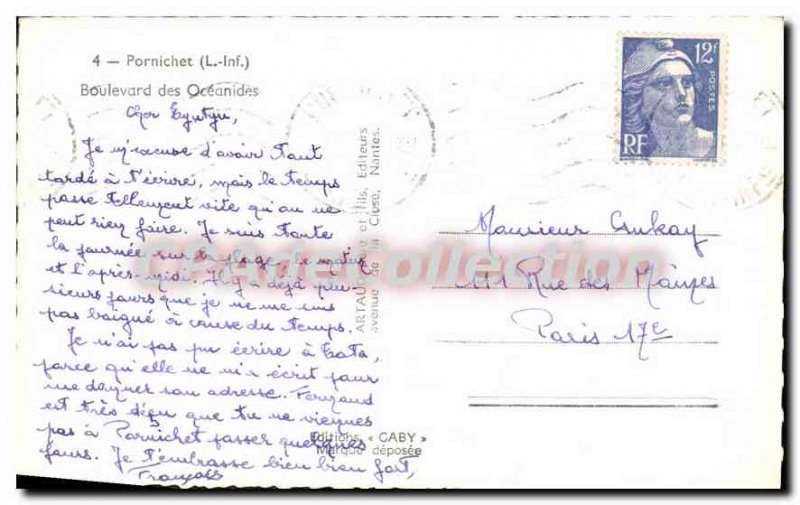 4 — Pornichet (L.-Inf.)
Boulevard des Océanides
Cher
Je m'excuse d'avoir tant
tardé à t'écrire, mais le temps
passe tellement vite qu'on ne
peut rien faire. Je suis toute
la journée sur la plage, le matin
et l'après-midi. Il y a déjà plu-
sieurs jours que je ne me suis
pas baigné à cause du temps.
Je n'ai pas pu écrire à Tata,
parce qu'elle ne m'a écrit pour
me donner son adresse. Fernand
est très déçu que tu ne viennes
pas à Pornichet passer quelques
jours. Je t'embrasse bien bien fort,
François
ARTAUD Père et fils, Editeurs
avenue de la Close, Nantes.
Editions « GABY »
Marque déposée
12F
POSTES
RF
Monsieur
111 Rue des
Paris 17e
CPA de Collection